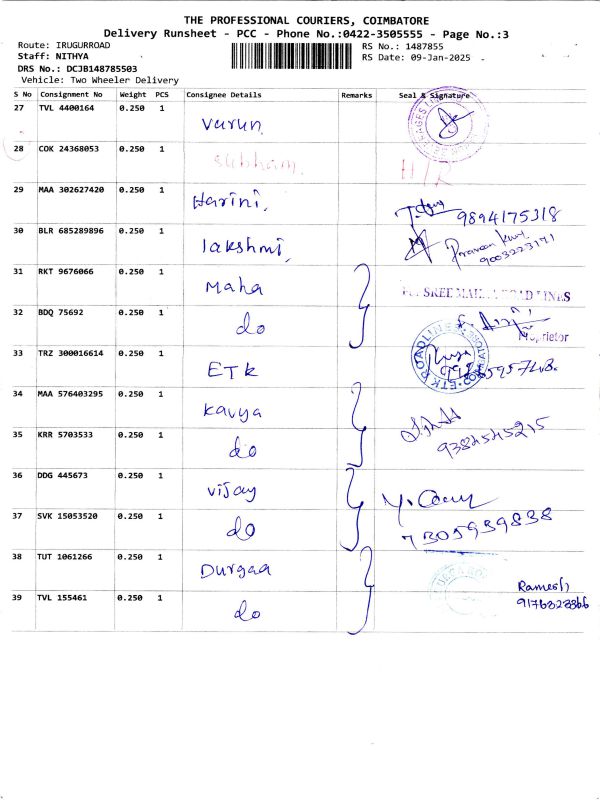 THE PROFESSIONAL COURIERS, COIMBATORE
Delivery Runsheet - PCC - Phone No.:0422-3505555 - Page No.:3
Route: IRUGURROAD RS No.: 1487855
Staff: NITHYA RS Date: 09-Jan-2025
DRS No.: DCJB148785503
Vehicle: Two Wheeler Delivery
S No Consignment No Weight PCS Consignee Details Remarks Seal & Signature
27 TVL 4400164 0.250 1 Varun
28 COK 24368053 0.250 1 Subham H/R
29 MAA 302627420 0.250 1 Harini 9894175318
30 BLR 685289896 0.250 1 lakshmi Praveen Kumar 9003223171
31 RKT 9676066 0.250 1 Maha SREE ROAD LINES
32 BDQ 75692 0.250 1 do Proprietor
33 TRZ 300016614 0.250 1 ETK ETK ROADLINES
34 MAA 576403295 0.250 1 Kavya
35 KRR 5703533 0.250 1 do 9384545215
36 DDG 445673 0.250 1 vijay
37 SVK 15053520 0.250 1 do 7305939838
38 TUT 1061266 0.250 1 Durgaa Ramesh
39 TVL 155461 0.250 1 do 9176828366